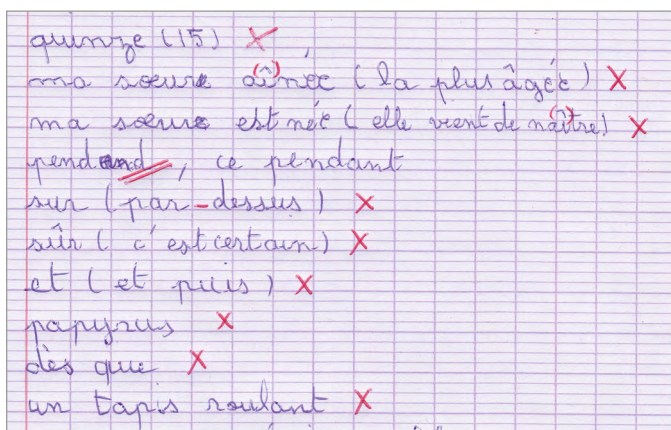 quinze (15) X
ma sœure aînée (la plus âgée) X
ma sœure est née (elle vient de naître) X
pendand, ce pendant
sur (par-dessus) X
sûr (c'est certain) X
et (et puis) X
papyrus X
dès que X
un tapis roulant X